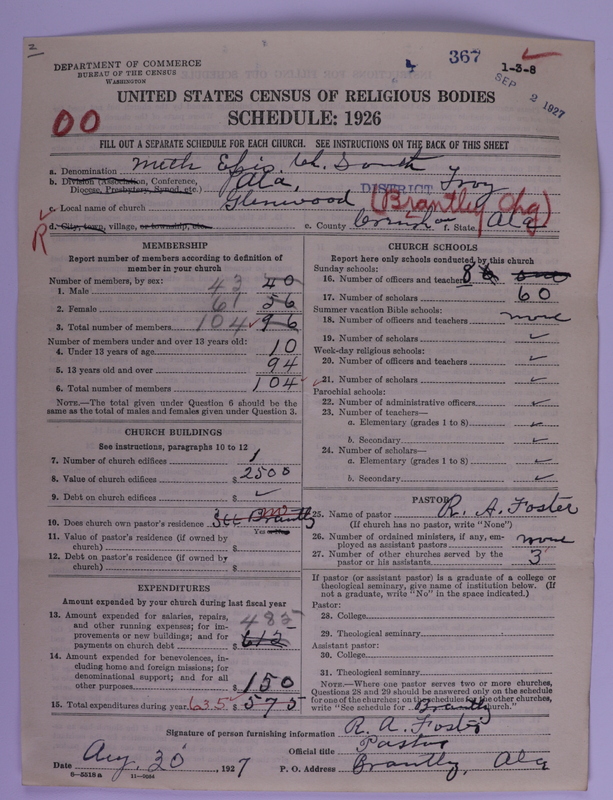 2
DEPARTMENT OF COMMERCE
BUREAU OF THE CENSUS
WASHINGTON
367
1-3-8
SEP 2 1927
UNITED STATES CENSUS OF RELIGIOUS BODIES
SCHEDULE: 1926
00
FILL OUT A SEPARATE SCHEDULE FOR EACH CHURCH. SEE INSTRUCTIONS ON THE BACK OF THIS SHEET
a. Denomination Meth Epis. Ch. South
b. Division (Association, Conference, Diocese, Presbytery, Synod, etc.) Ala, DISTRICT Troy
c. Local name of church Glenwood (Brantley Chg)
R d. City, town, village, or township, etc. e. County Crenshaw f. State Ala
MEMBERSHIP
Report number of members according to definition of member in your church
Number of members, by sex:
1. Male 43 40
2. Female 61 56
3. Total number of members 104 96
Number of members under and over 13 years old:
4. Under 13 years of age 10
5. 13 years old and over 94
6. Total number of members 104
NOTE.—The total given under Question 6 should be the same as the total of males and females given under Question 3.
CHURCH BUILDINGS
See instructions, paragraphs 10 to 12
7. Number of church edifices 1
8. Value of church edifices $2500
9. Debt on church edifices $ ✓
10. Does church own pastor's residence See Brantly no
Yes or No
11. Value of pastor's residence (if owned by church) $
12. Debt on pastor's residence (if owned by church) $
EXPENDITURES
Amount expended by your church during last fiscal year
13. Amount expended for salaries, repairs, and other running expenses; for improvements or new buildings; and for payments on church debt $ 485 612
14. Amount expended for benevolences, including home and foreign missions; for denominational support; and for all other purposes $150
15. Total expenditures during year 635 $575
CHURCH SCHOOLS
Report here only schools conducted by this church
Sunday schools:
16. Number of officers and teachers 8
17. Number of scholars 60
Summer vacation Bible schools:
18. Number of officers and teachers none
19. Number of scholars ✓
Week-day religious schools:
20. Number of officers and teachers ✓
21. Number of scholars ✓
Parochial schools:
22. Number of administrative officers ✓
23. Number of teachers—
a. Elementary (grades 1 to 8) ✓
b. Secondary ✓
24. Number of scholars—
a. Elementary (grades 1 to 8) ✓
b. Secondary ✓
PASTOR
25. Name of pastor R. A. Foster
(If church has no pastor, write "None")
26. Number of ordained ministers, if any, employed as assistant pastors none
27. Number of other churches served by the pastor or his assistants 3
If pastor (or assistant pastor) is a graduate of a college or theological seminary, give name of institution below. (If not a graduate, write "No" in the space indicated.)
Pastor:
28. College
29. Theological seminary
Assistant pastor:
30. College
31. Theological seminary
NOTE.—Where one pastor serves two or more churches, Questions 28 and 29 should be answered only on the schedule for one of the churches; on the schedules for the other churches, write "See schedule for Brantly church."
Signature of person furnishing information R. A. Foster
Official title Pastor
Date Aug. 30, 1927 P. O. Address Brantly, Ala
8—5518a 11—9064